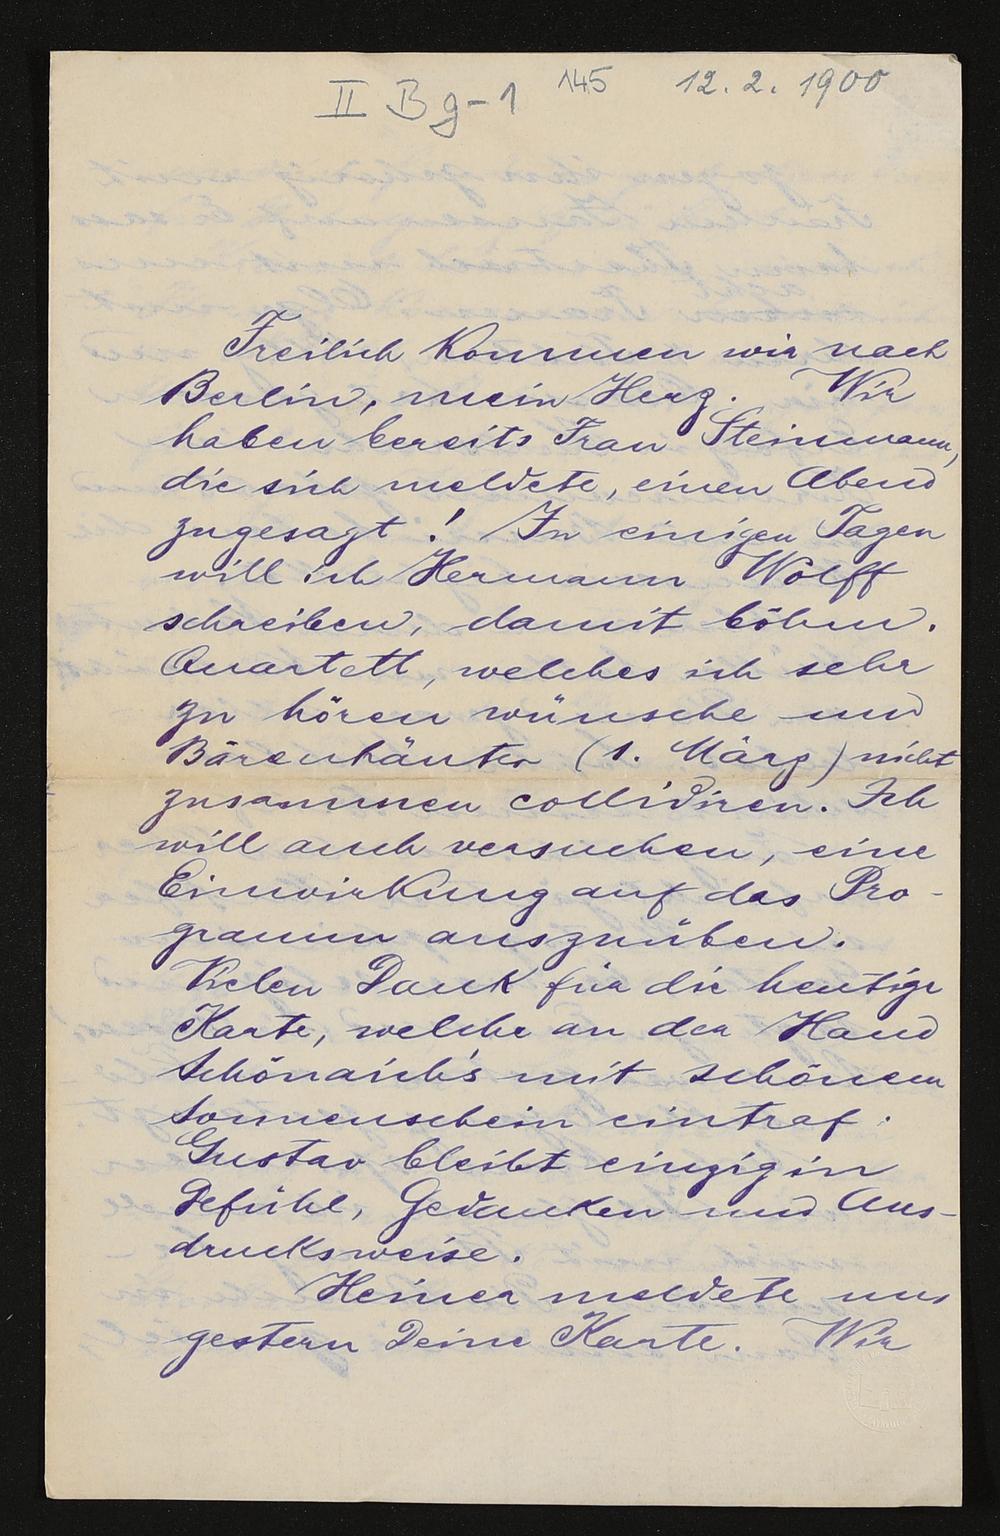 II Bg-1 145 12. 2. 1900
Freilich kommen wir nach
Berlin, mein Herz. Wir
haben bereits Frau Steinmann,
die sich meldete, einen Abend
zugesagt! In einigen Tagen
will ich Hermann Wolff
schreiben, damit böhm.
Quartett, welches ich sehr
zu hören wünsche und
Bärenhäuter (1. März) nicht
zusammen collidiren. Ich
will auch versuchen, eine
Einwirkung auf das Pro-
gramm auszuüben.
Vielen Dank für die heutige
Karte, welche an der Hand
Schönaich's mit schönem
Sonnenschein eintraf.
Gustav bleibt einzig in
Gefühl, Gedanken und Aus-
drucksweise.
Heiner meldete uns
gestern Deine Karte. Wir